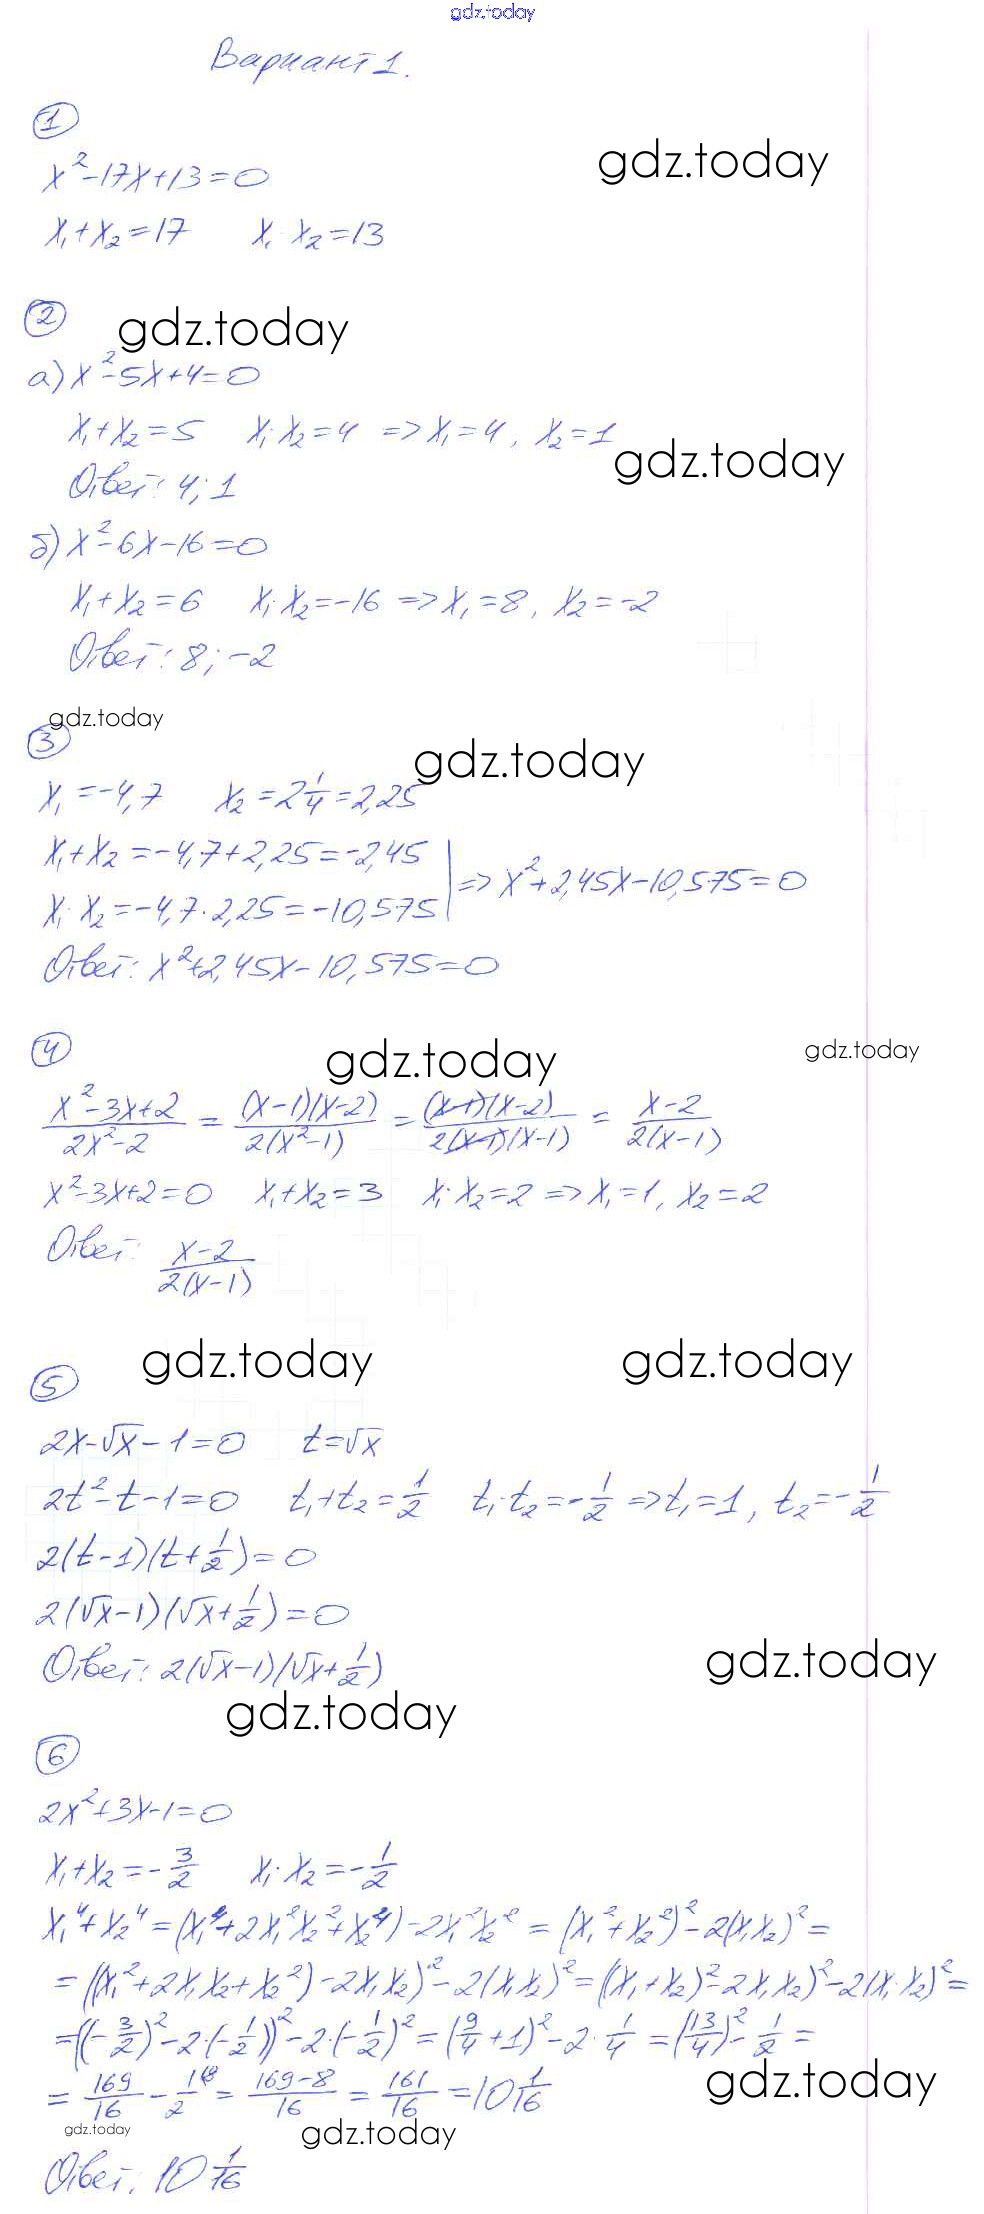 gdz.today
Вариант 1.
1
gdz.today
x²-17x+13=0
x₁+x₂=17 x₁·x₂=13
2
gdz.today
а) x²-5x+4=0
x₁+x₂=5 x₁·x₂=4 => x₁=4, x₂=1
gdz.today
Ответ: 4; 1
б) x²-6x-16=0
x₁+x₂=6 x₁·x₂=-16 => x₁=8, x₂=-2
Ответ: 8; -2
gdz.today
3
gdz.today
x₁=-4,7 x₂=2 1/4=2,25
x₁+x₂=-4,7+2,25=-2,45
x₁·x₂=-4,7·2,25=-10,575 | => x²+2,45x-10,575=0
Ответ: x²+2,45x-10,575=0
4
gdz.today
gdz.today
(x²-3x+2)/(2x²-2) = ((x-1)(x-2))/(2(x²-1)) = ((x-1)(x-2))/(2(x-1)(x-1)) = (x-2)/(2(x-1))
x²-3x+2=0 x₁+x₂=3 x₁·x₂=2 => x₁=1, x₂=2
Ответ: (x-2)/(2(x-1))
gdz.today
gdz.today
5
2x-√x-1=0 t=√x
2t²-t-1=0 t₁+t₂=1/2 t₁·t₂=-1/2 => t₁=1, t₂=-1/2
2(t-1)(t+1/2)=0
2(√x-1)(√x+1/2)=0
Ответ: 2(√x-1)(√x+1/2)
gdz.today
gdz.today
6
2x²+3x-1=0
x₁+x₂=-3/2 x₁·x₂=-1/2
x₁⁴+x₂⁴=(x₁⁴+2x₁²x₂²+x₂⁴)-2x₁²x₂²=(x₁²+x₂²)²-2(x₁x₂)²=
=((x₁²+2x₁x₂+x₂²)-2x₁x₂)²-2(x₁x₂)²=((x₁+x₂)²-2x₁x₂)²-2(x₁·x₂)²=
=((-3/2)²-2·(-1/2))²-2·(-1/2)²=(9/4+1)²-2·1/4=(13/4)²-1/2=
=169/16-1/2 ⁸=(169-8)/16=161/16=10 1/16
gdz.today
gdz.today
gdz.today
Ответ: 10 1/16